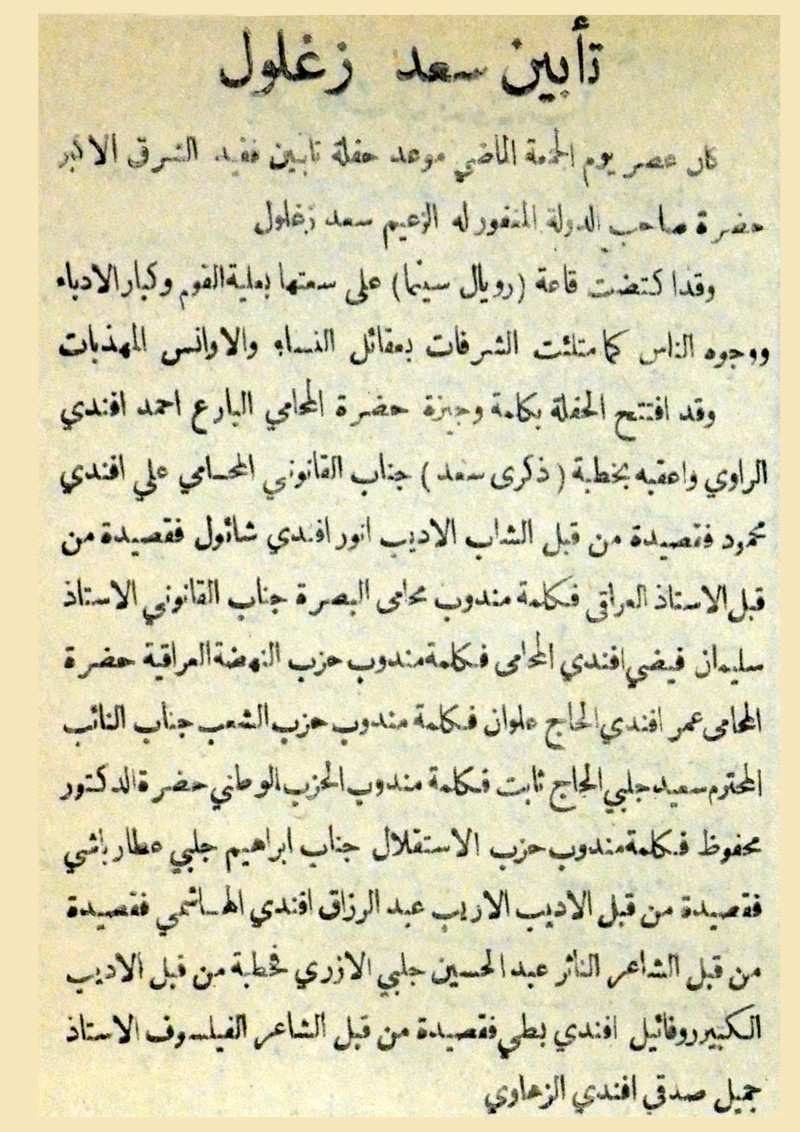 تأبين سعد زغلول
كان عصر يوم الجمعة الماضي موعد حفلة تابين فقيد الشرق الاكبر
حضرة صاحب الدولة المغفور له الزعيم سعد زغلول
وقدا كتضت قاعة (رويال سينما) على سعتها بعلية القوم وكبار الادباء
ووجوه الناس كما متلئت الشرفات بعقائل النساء والاوانس المهذبات
وقد افتتح الحفلة بكلمة وجيزة حضرة المحامي البارع احمد افندي
الراوي واعقبه بخطبة (ذكرى سعد) جناب القانوني المحامي علي افندي
محمود فقصيدة من قبل الشاب الاديب انور افندي شائول فقصيدة من
قبل الاستاذ العراقي فكلمة مندوب محامى البصرة جناب القانوني الاستاذ
سليمان فيضي افندي المحامى فكلمة مندوب حزب النهضة العراقية حضرة
المحامى عمر افندي الحاج علوان فكلمة مندوب حزب الشعب جناب النائب
المحترم سعيد جلبي الحاج ثابت فكلمة مندوب الحزب الوطني حضرة الدكتور
محفوظ فكلمة مندوب حزب الاستقلال جناب ابراهيم جلبي عطار باشي
فقصيدة من قبل الاديب الاريب عبد الرزاق افندي الهاشمي فقصيدة
من قبل الشاعر الناثر عبد الحسين جلبي الازري فخطبة من قبل الاديب
الكبير روفائيل افندي بطي فقصيدة من قبل الشاعر الفيلسوف الاستاذ
جميل صدقي افندي الزهاوي